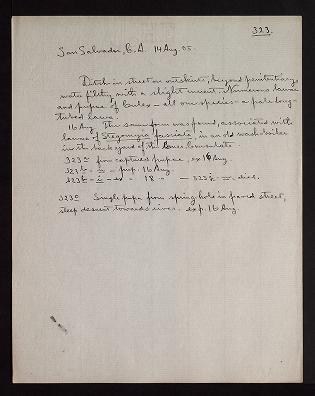 323.
San Salvador, C.A. 14 Aug. 05.
Ditch in street on outskirts, beyond penitentiary,
water filthy, with a slight current. Numerous larvae
and pupae of Culex – all one species – a pale long-
tubed larva.
16 Aug. The same form was found, associated with
larvae of Stegomyia fasciata, in an old wash-boiler
in the back yard of the Consulate.
323a from captured pupae, ex 16 Aug.
323b – i – pup. 16 Aug.
323b – i – ex 18 "
323c Single pupa from spring hole in paved street,
steep descent towards river. exp. 16 Aug